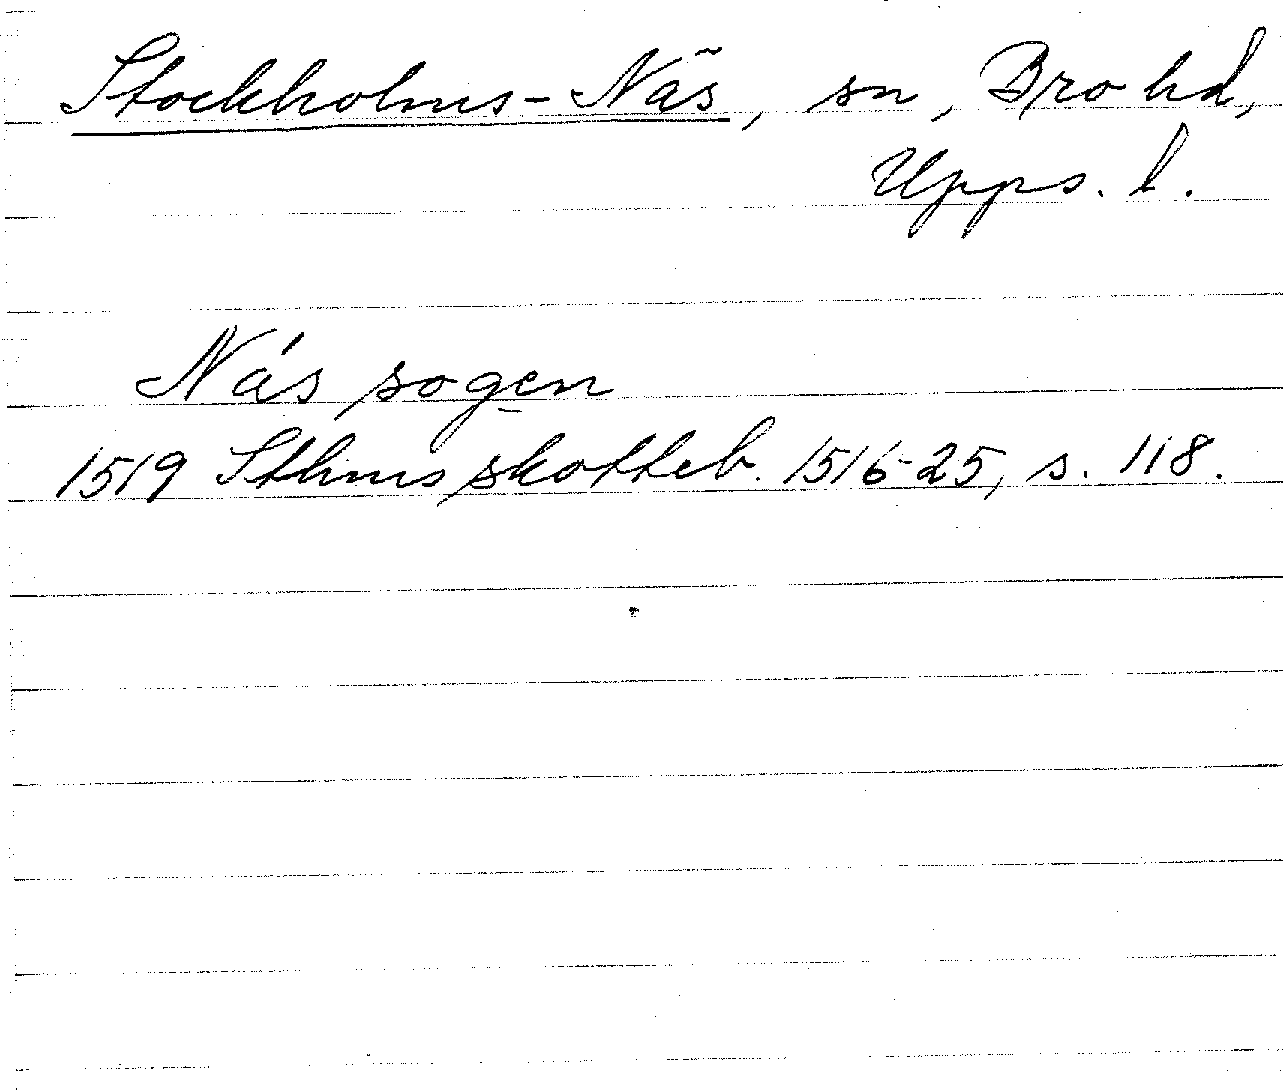 Stockholms-Näs, sn, Bro hd,
Upps. l.
Nás sogen
1519 Sthms skotteb. 1516-25, s. 118.